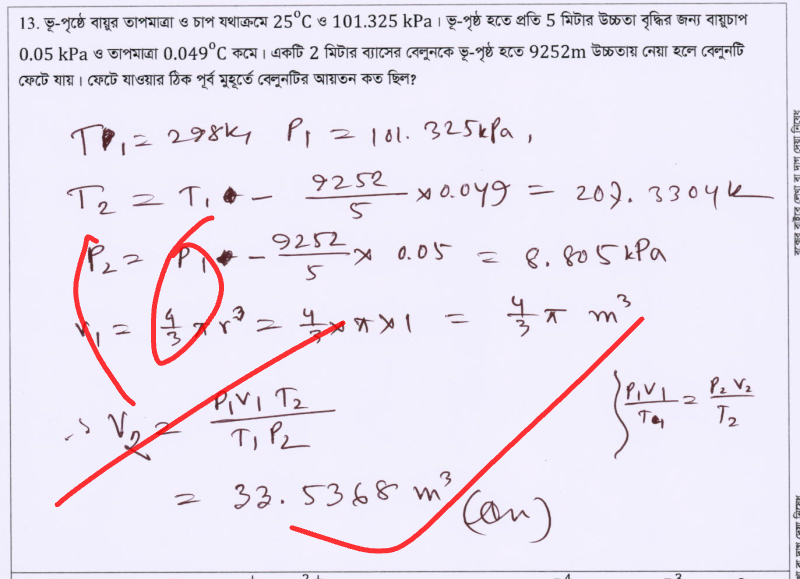 13. ভূ-পৃষ্ঠে বায়ুর তাপমাত্রা ও চাপ যথাক্রমে 25°C ও 101.325 kPa। ভূ-পৃষ্ঠ হতে প্রতি 5 মিটার উচ্চতা বৃদ্ধির জন্য বায়ুচাপ
0.05 kPa ও তাপমাত্রা 0.049°C কমে। একটি 2 মিটার ব্যাসের বেলুনকে ভূ-পৃষ্ঠ হতে 9252m উচ্চতায় নেয়া হলে বেলুনটি
ফেটে যায়। ফেটে যাওয়ার ঠিক পূর্ব মুহূর্তে বেলুনটির আয়তন কত ছিল?
T₁ = 298K, P₁ = 101.325kPa,
T₂ = T₁ - 9252/5 × 0.049 = 207.3304K
P₂ = P₁ - 9252/5 × 0.05 = 8.805kPa
V₁ = 4/3 π r³ = 4/3 × π × 1 = 4/3 π m³
P₁V₁/T₁ = P₂V₂/T₂
∴ V₂ = P₁V₁T₂/T₁P₂
= 33.5368 m³ (Ans)